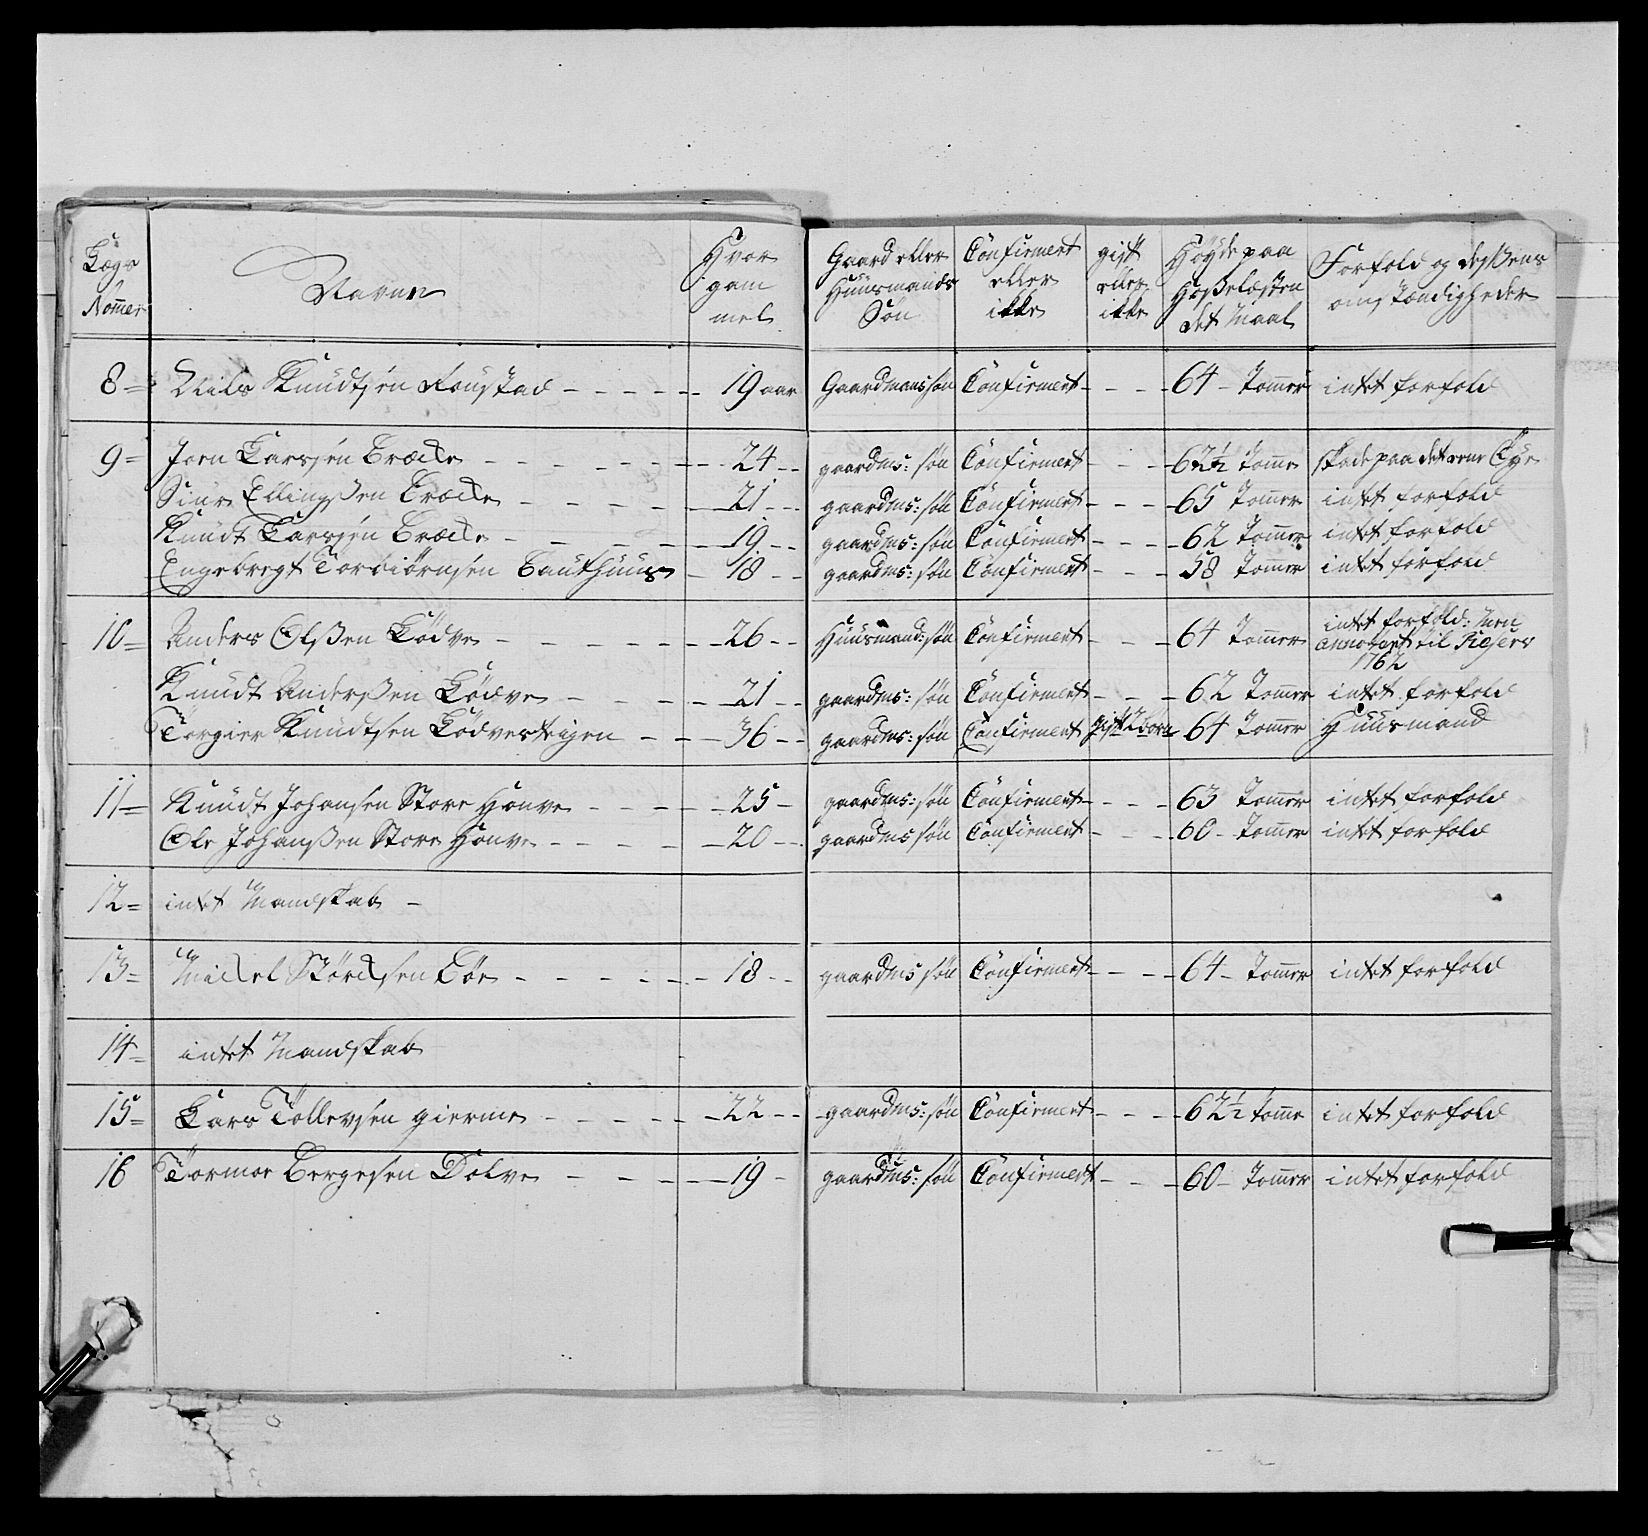 Lægs Nomer | Navne | Hvor gam mel | Gaard eller Huusmands Søn | Confirmert eller ikke | gift eller ikke | Høyde paa Hoßelæsten det Maal | Forfald og deßens omstændigheder
8 = Nils Knudtsen - - - - - 19 aar | Gaardmanssøn | Confirmert - - - - 64 - Tommer | intet forfald
9 = Joen Larsen Bræcke - - - - - 24 - - | gaardms: søn | Confirmert - - - 62½ Tomme | skade paa det eene Øye
Siur Ellingßen Bræcke - - - - - 21 - - | gaardms: søn | Confirmert - - - 65 Tommer | intet forfald
Knudt Larsen Bræcke - - - - - 19 - - | gaardms: søn | Confirmert - - - 62 Tommer | intet forfald
Engebregt Torbiørnsen - 18 - - | gaardms: søn | Confirmert - - - 58 Tommer | intet forfald
10 = Anders Olßen Lødve - - - - - 26 - - | Huusmand: søn | Confirmert - - - 64 Tommer | intet forfald: Men
annotert til Reserv
1762
Knudt Anderßen Lødve - - - - 21 - - | gaardms: søn | Confirmert - - - 62 Tommer | intet forfald
Torgier Knudtsen - - - 36 - - | gaardms: søn | Confirmert | gift 2 born | 64 Tommer | Huusmand
11 = Knudt Johansen Store Honve - - - - 25 - | gaardms: søn | Confirmert - - - 63 Tommer | intet forfald
Ole Johanßen Store Honve - - - - - 20 - - | gaardms søn | Confirmert - - - 60 - Tommer | intet forfald
12 = intet Mandskab -
13 = Mickel Størcksen Bøe - - - - - 18 - - | gaardms søn | Confirmert - - - 64 - Tommer | intet forfald
14 = intet Mandskab
15 = Lars Tollevsen gierme - - - - - 22 - - | gaardms: søn | Confirmert - - - 62½ Tomme | intet forfald
16 Tormoe Bergesen Dolve - - - - - 19 - | gaardms: søn | Confirmert - - - 60 - Tommer | intet forfald